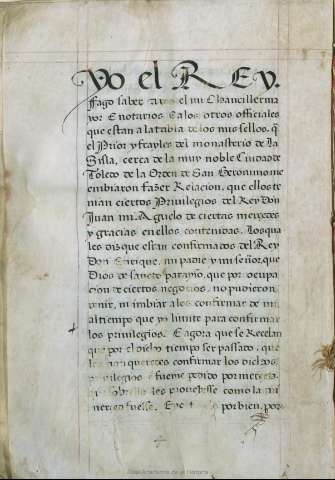 Yo el Rey.
ffago saber a vos el mi Chanciller ma
yor E notarios E a los otros officiales
que estan a la tabla de los mis sellos. q̃
el Prior y frayles del monasterio de la
Sisla, cerca de la muy noble Ciudad de
Toledo de la Orden de San Geronimo me
embiaron fazer Relacion, que ellos te
nian ciertos Privilegios del Rey Don
Juan mi Aguelo de ciertas mercedes
y gracias en ellos contenidas. Los qua
les dizque estan confirmados del Rey
Don Enrique, mi padre y mi señor, que
Dios de sancto parayso, que por ocupa
cion de ciertos negocios, no pudieron
venir, ni imbiar a les confirmar de mi
al tiempo que yo limite para confirmar
los privilegios. E agora que se Recelan
que por el dicho tiempo ser passado, que
les non queredes confirmar los dichos
privilegios E fueme pedido por merced
sobrello les proveyesse como la mi
merced fuesse. E yo por bien, por
Real Academia de la Historia